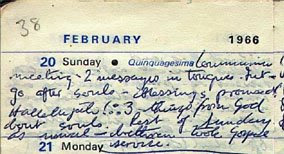 38
FEBRUARY 1966
20 Sunday • Quinquagesima Communion
meeting - 2 messages in tongues. Int -
go after souls - Blessings promised
Hallelujah (:- 3 things from God
about souls. Rest of Sunday
as usual - between wrote Gospel
21 Monday service.